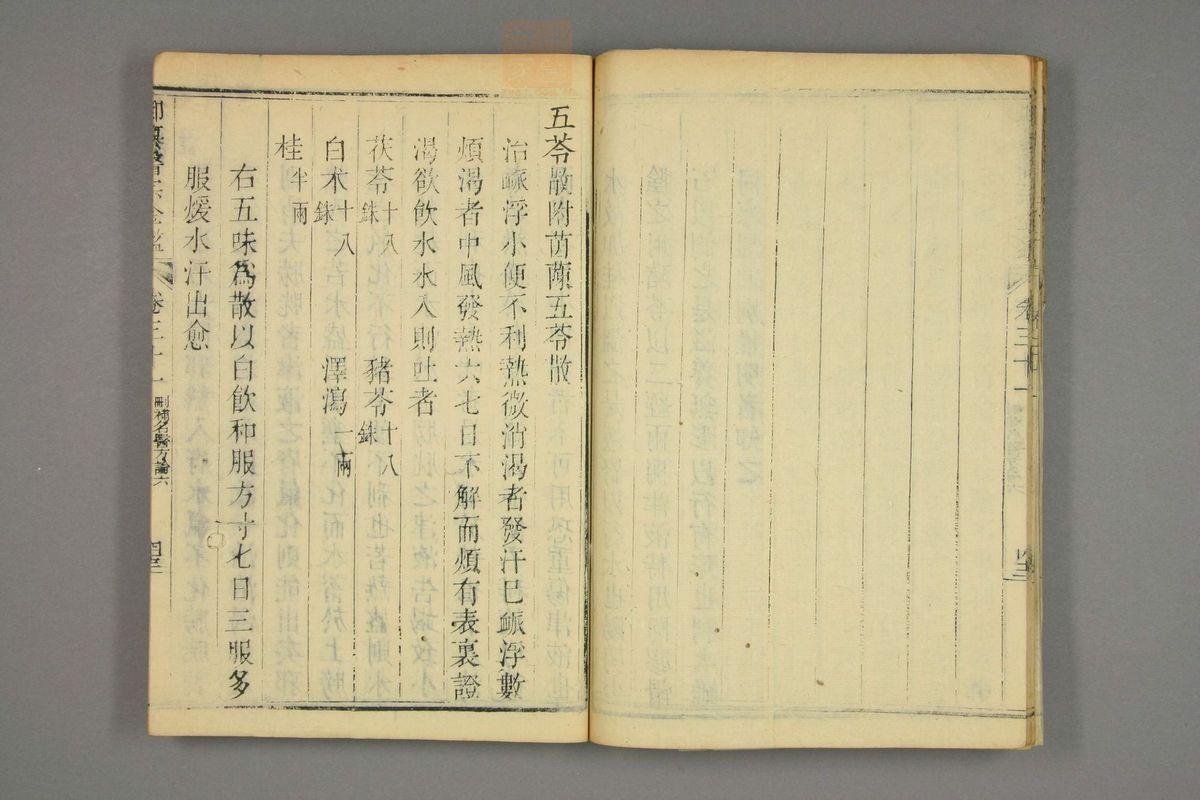 五苓散附茵蔯五苓散
治脈浮小便不利熱微消渴者發汗已脈浮數
煩渴者中風發熱六七日不解而煩有表裏證
渴欲飲水水入則吐者
茯苓十八銖 豬苓十八銖
白朮十八銖 澤瀉一兩
桂半兩
右五味為散以白飲和服方寸匕日三服多
服煖水汗出愈
卷三十一 刪補名醫方論六